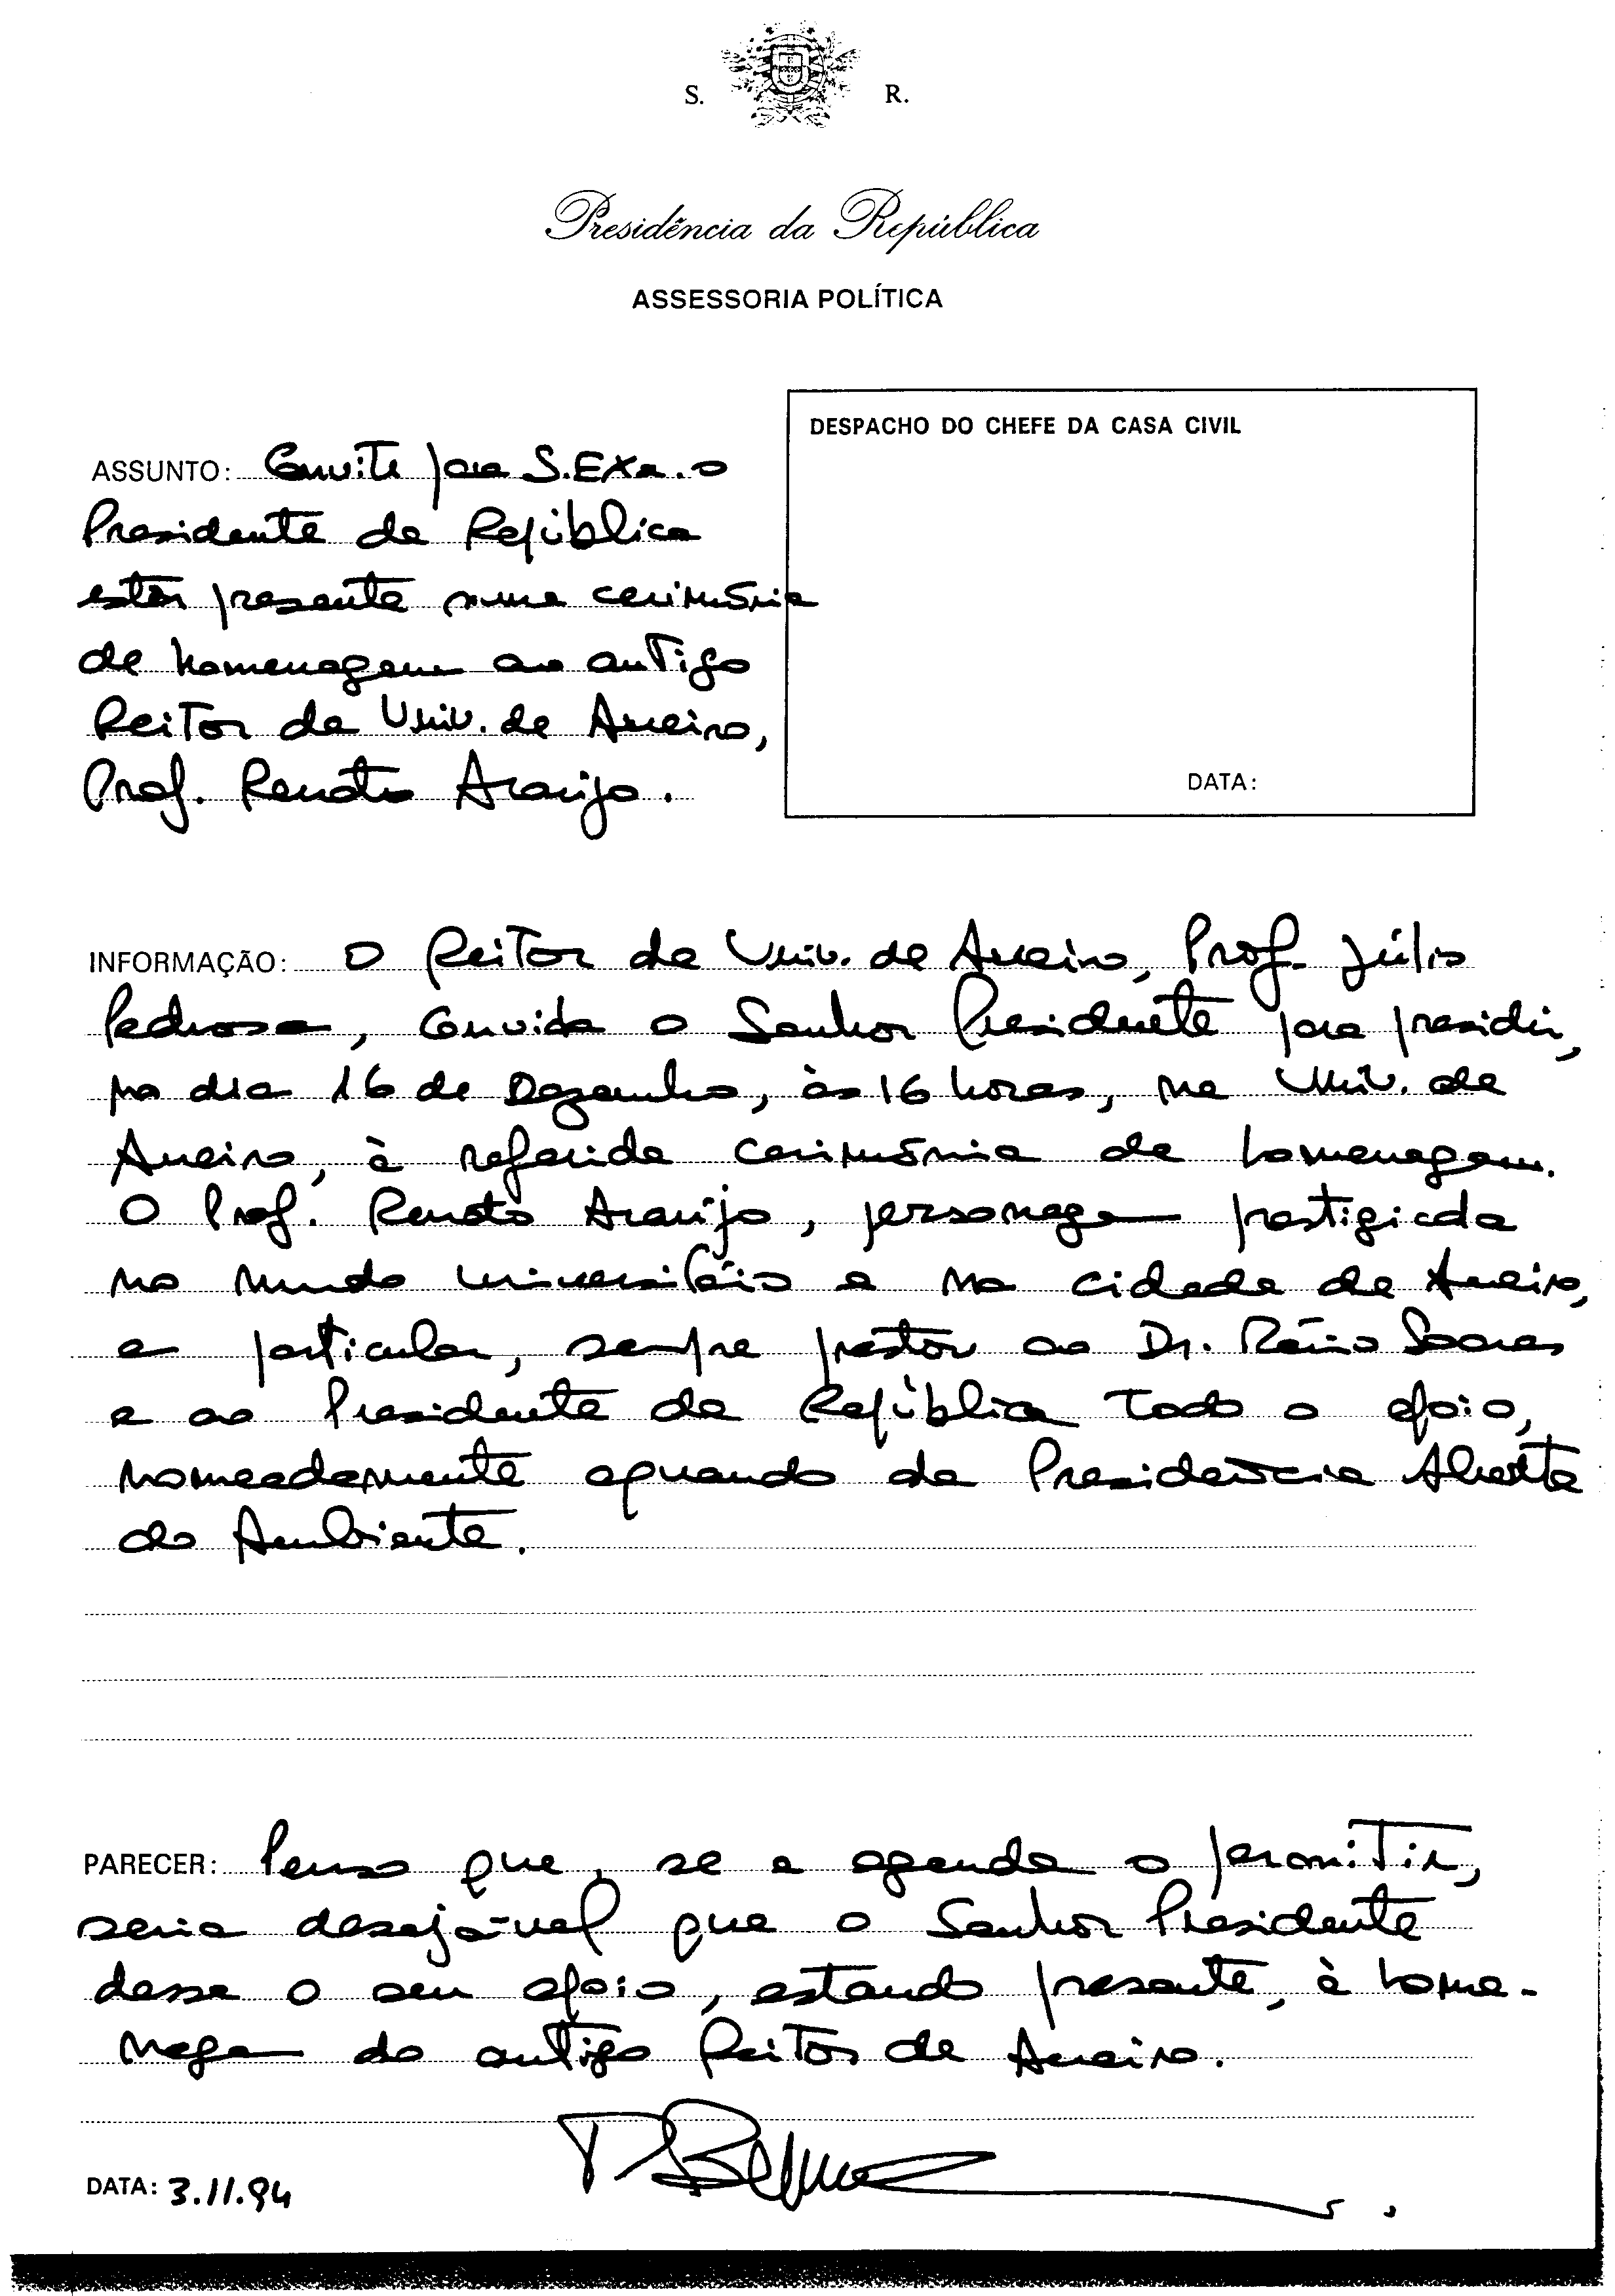 S. R.
Presidência da República
ASSESSORIA POLÍTICA
DESPACHO DO CHEFE DA CASA CIVIL
ASSUNTO: Convite para S.EXa. o
Presidente da República
estar presente numa cerimónia
de homenagem ao antigo
Reitor da Univ. de Aveiro,
Prof. Renato Araújo.
DATA:
INFORMAÇÃO: O Reitor da Univ. de Aveiro, Prof. Júlio
Pedrosa, convida o Senhor Presidente para presidir,
no dia 16 de Dezembro, às 16 horas, na Univ. de
Aveiro, à referida cerimónia de homenagem.
O Prof. Renato Araújo, personagem prestigiada
no mundo universitário e na cidade de Aveiro,
e particular, sempre prestou ao Dr. Mário Soares
e ao Presidente da República todo o apoio,
nomeadamente aquando da Presidência Aberta
do Ambiente.
PARECER: Penso que, se a agenda o permitir,
seria desejável que o Senhor Presidente
desse o seu apoio, estando presente, à home-
nagem do antigo Reitor de Aveiro.
DATA: 3.11.94